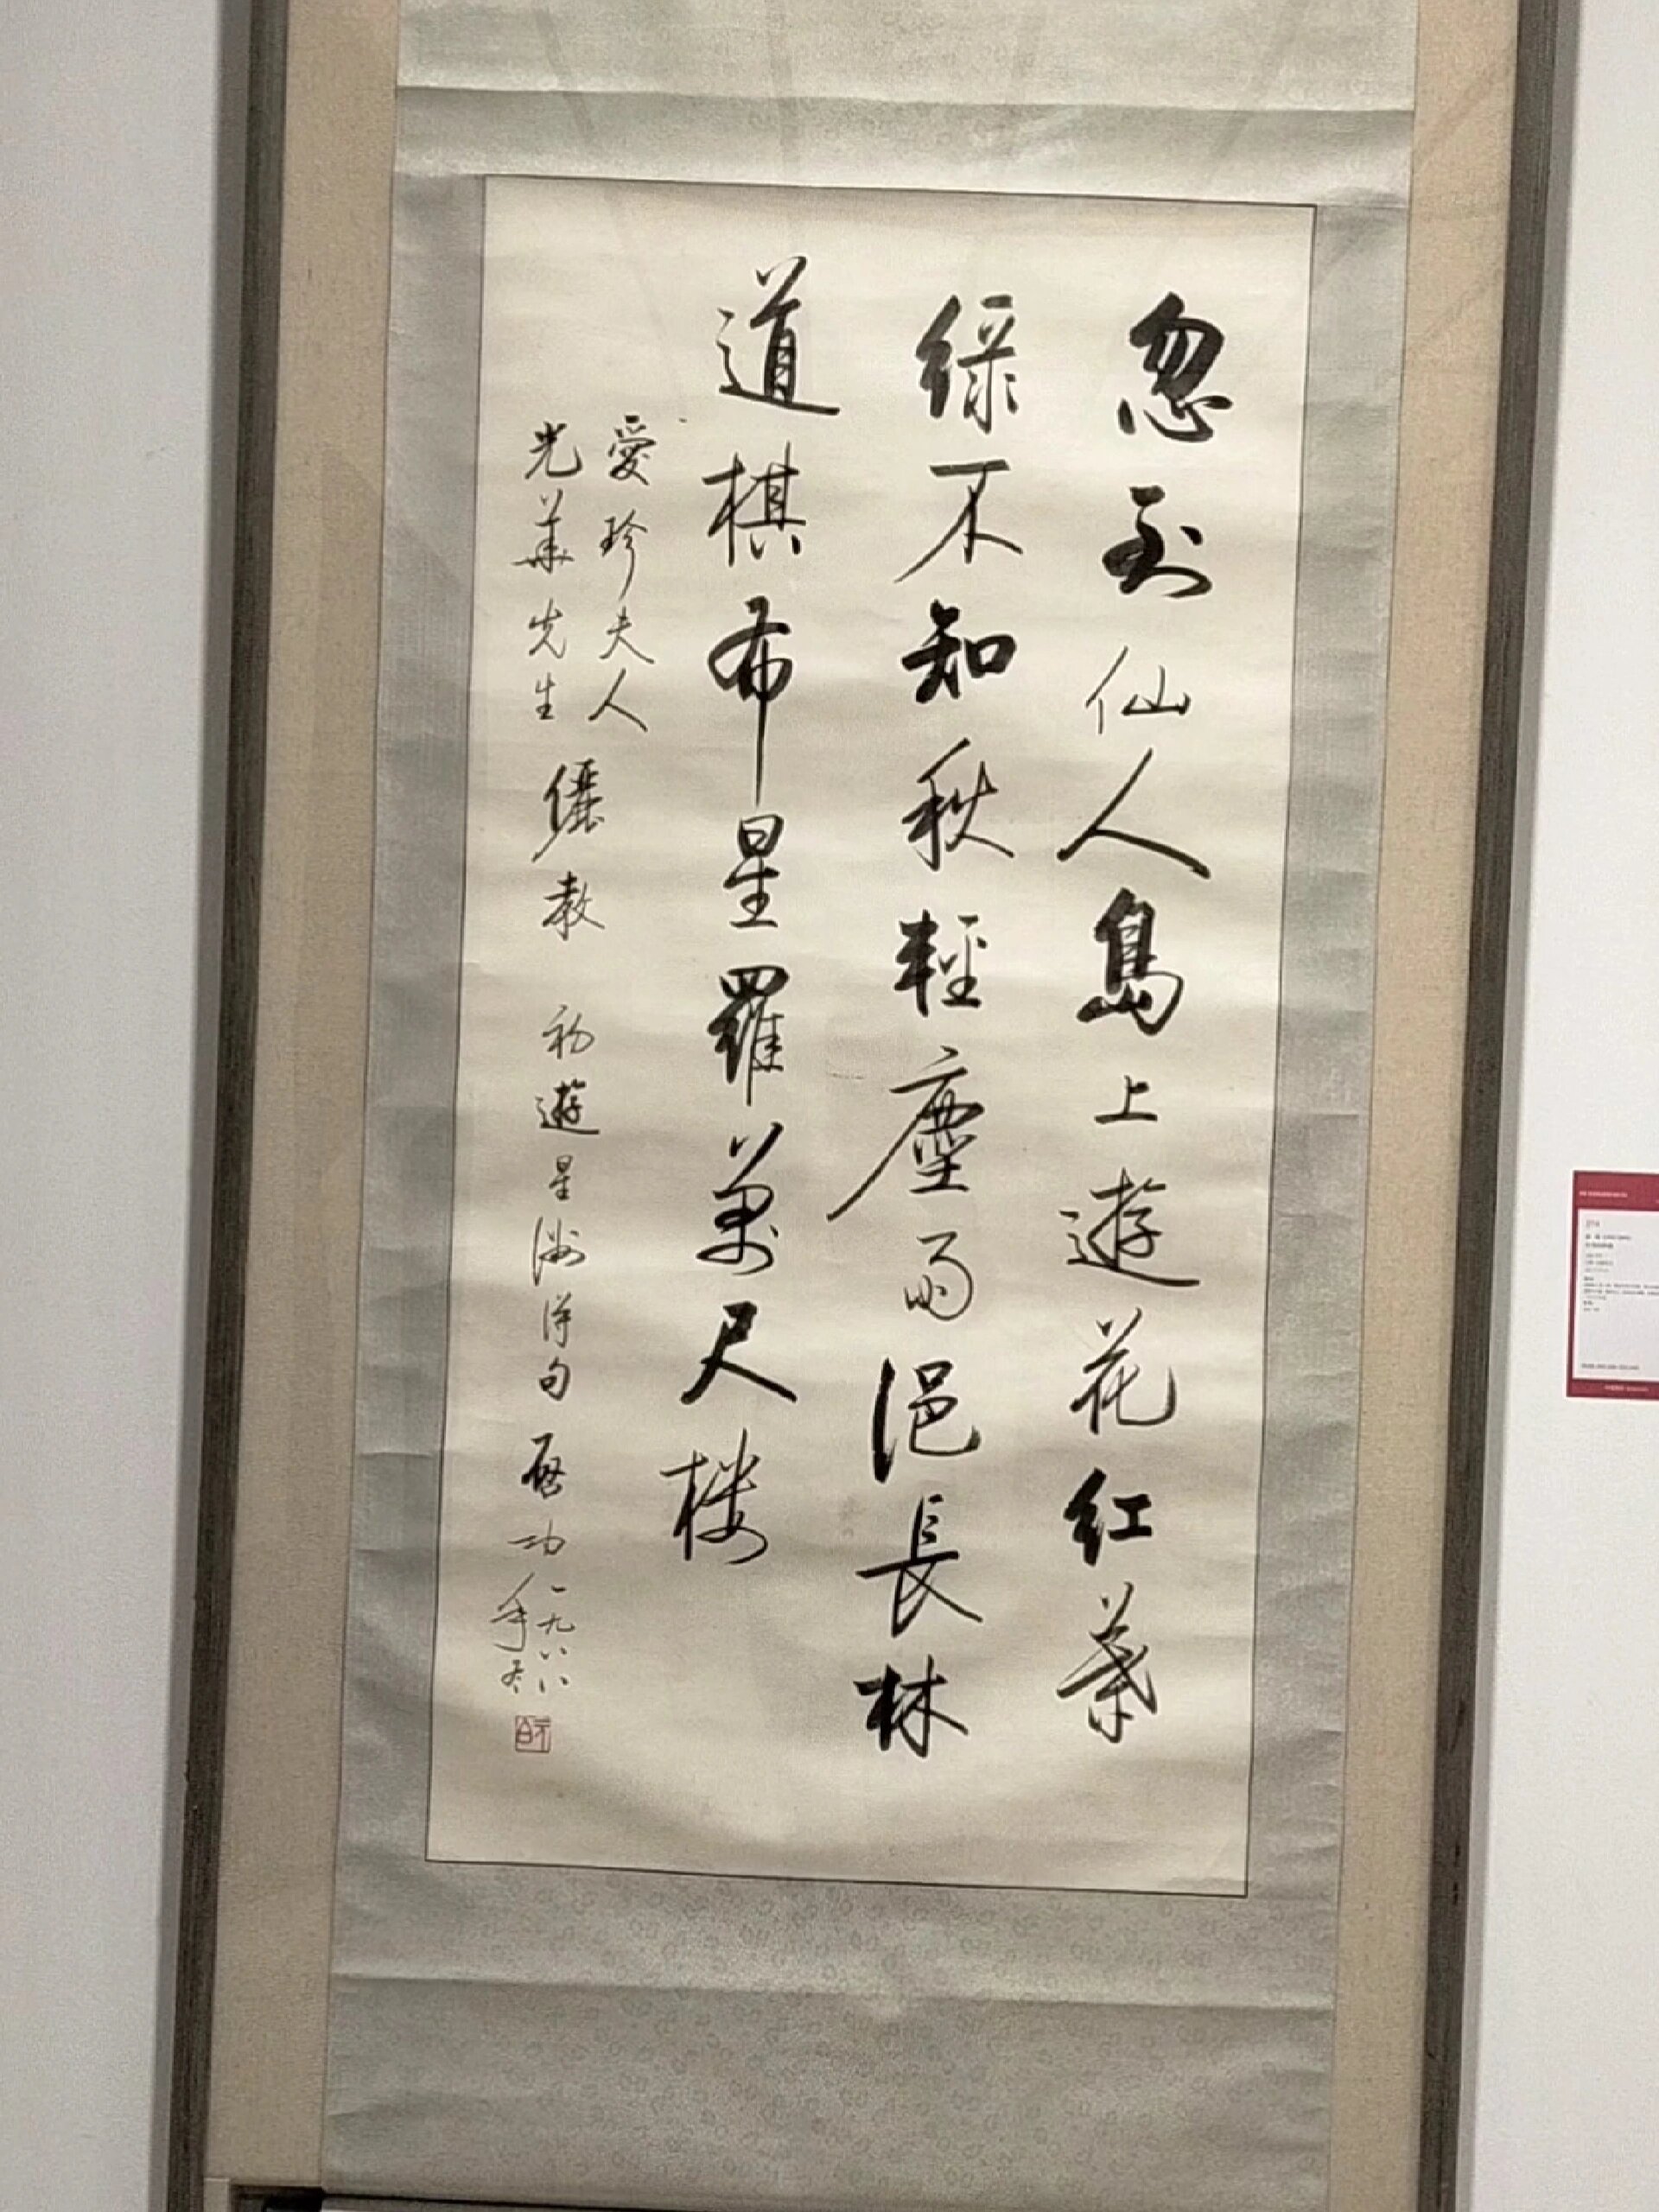 忽到仙人島上遊花紅葉
綠不知秋輕塵雨浥長林
道棋布星羅萬尺樓
愛珍夫人
光華先生 儷教 初遊星洲得句 啟功 一九八八
年冬